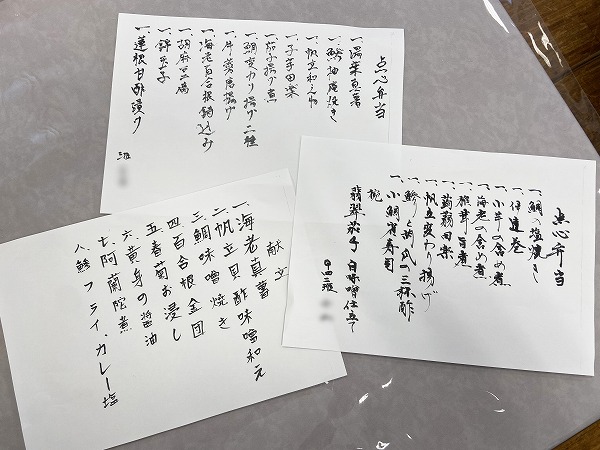 点心弁当
一、湯葉真薯
一、鯵柚庵焼き
一、帆立和え物
一、子芋田楽
一、茄子揚げ煮
一、鯛変わり揚げ二種
一、牛蒡唐揚げ
一、海老百合根鋳込み
一、胡麻豆腐
一、錦玉子
一、蓮根甘酢漬け
三班
点心弁当
一、鯛の塩焼き
一、伊達巻
一、小芋の含め煮
一、海老の含め煮
一、椎茸旨煮
一、蒟蒻田楽
一、帆立変わり揚げ
一、鯵と胡瓜の三杯酢
一、小鯛雀寿司
椀
翡翠茄子 白味噌仕立て
四二班
献立
一、海老真薯
二、帆立貝酢味噌和え
三、鯛味噌焼き
四、百合根金団
五、春菊お浸し
六、黄身の醤油
七、阿蘭陀煮
八、鯵フライ・カレー塩